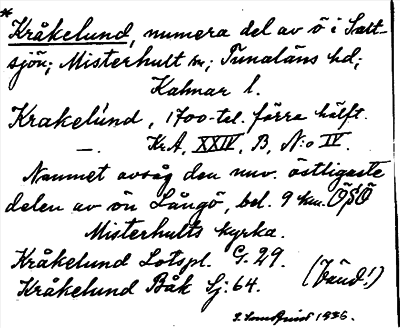 * Kråkelund, numera del av ö i Salt-
sjön; Misterhult sn; Tunaläns hd;
Kalmar l.
Krakelúnd, 1700-tal. förra hälft.
—. Kr.A. XXIV, B, N:o IV.
Namnet avsåg den nuv. östligaste
delen av ön Långö, bel. 9 km. ÖSÖ
Misterhults kyrka.
Kråkelund Lotspl. G. 29.
Kråkelund Båk Sj: 64. (Vänd!)
1936.